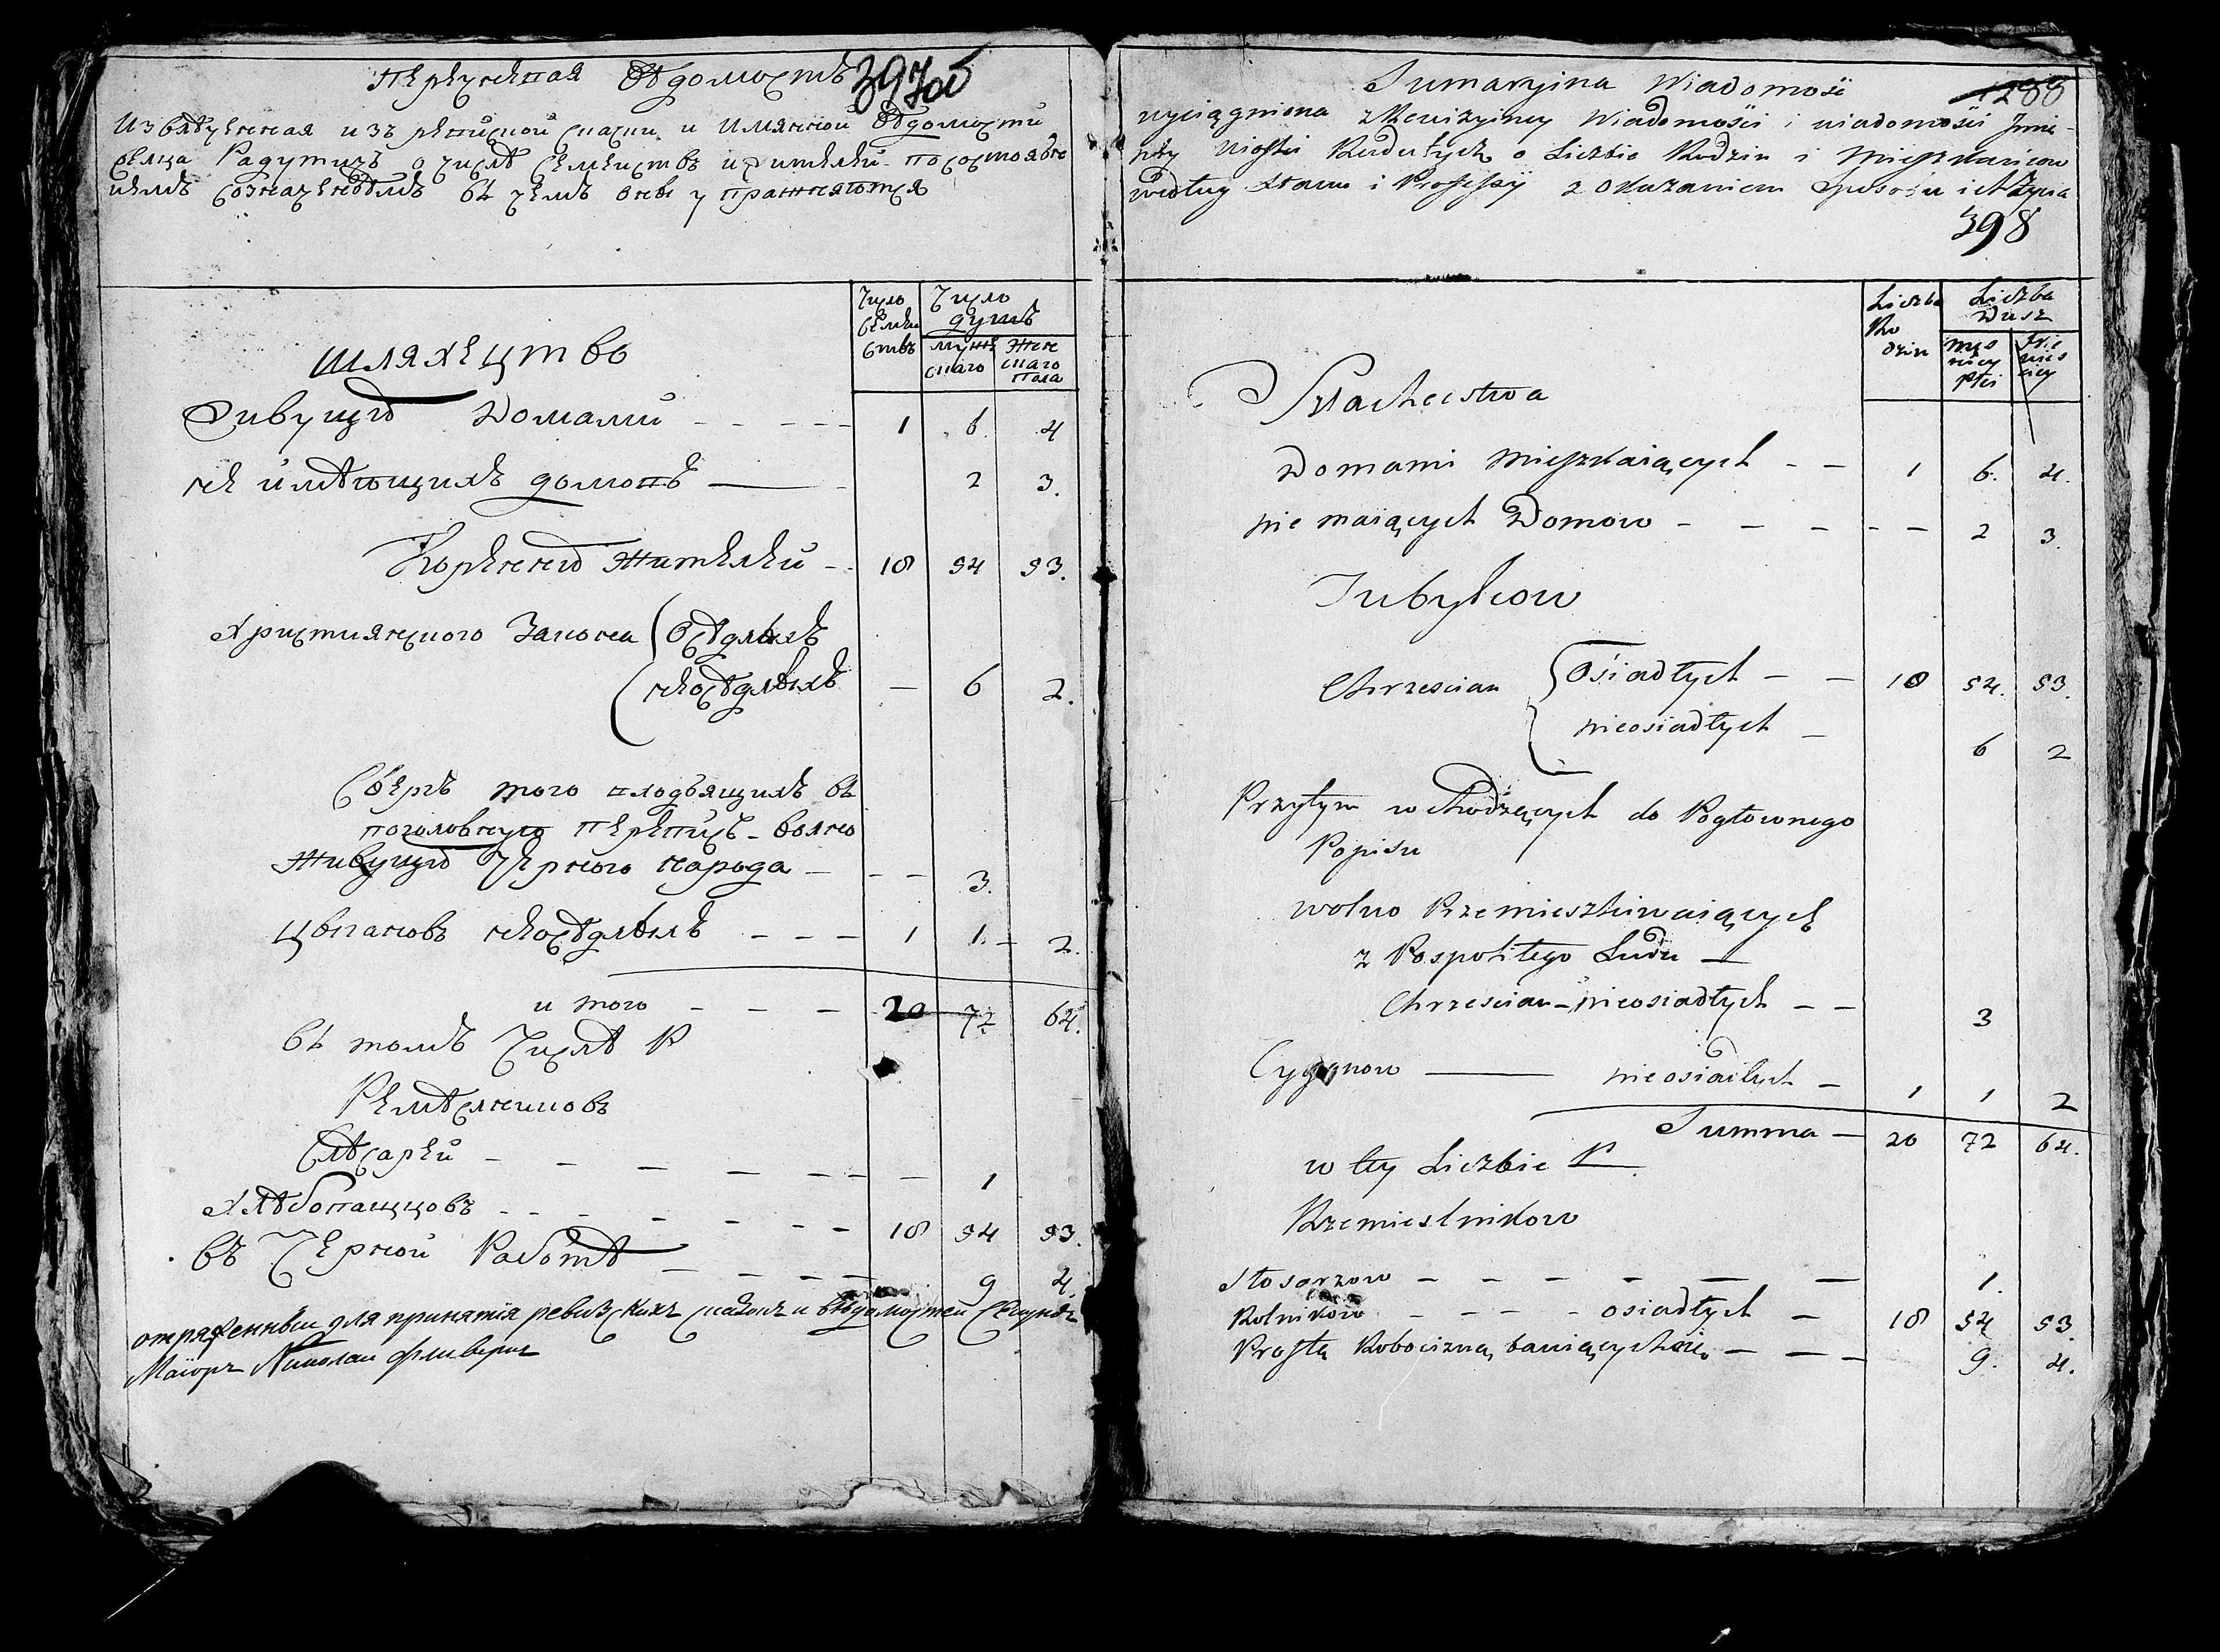 Перечневая Вѣдомость 397об
Извлѣченная изъ ревиской скаски и Имянной Вѣдомости
селца Радутичь о числѣ Семействъ и жителей по состояние
ихъ созначениемъ въ чемъ оны упражняются
Число Семей ствъ
Число душъ
мужескаго
женскаго пола
шляхецтво
Живущие Домами - - - - - 1 6. 4
не имѣющихъ домовъ — 2 3.
Коренние жителей - - 18 54 53.
Християнского Закона осѣдлыхъ
неосѣдлыхъ — 6 2.
Сверхъ того входящихъ въ
поголовную перепись волно
живущие Черного народа - - - 3.
Цыгановъ неосѣдлыхъ - - - 1 1. - 2.
и того - - - 20 72 64.
въ томъ Числѣ №
Ремѣсленниковъ
Слѣсарей - - - - - - - 1
Хлѣбопашцовъ - - - - - - - 18 54 53.
въ Черной Работѣ - - - - 9 4.
отряженный для принятия ревизскихъ скасокъ и вѣдомостей Секундъ
Маиоръ Николаи
Sumaryina Wiadomość 1288
wyciągniona z Rewizyiney Wiadomości i wiadomości Jmie-
nney Wioski Radutycz o Liczbie Rodzin i Mieszkańcow
według Stanu i Professyi z okazaniem sposobu ich Życia
398
Liczba Ro dzin
Liczba Dusz
męs kiey płci
Że nies kiey
Szlachectwa
Domami mieszkaiących - - 1 6. 4.
nie maiących Domow - - - - - 2 3.
Tubylcow
Chrzescian Osiadłych - - 18 54. 53.
nieosiadłych - 6 2
Przytym wchodzących do Pogłownego
Popisu
wolno Przemieszkiwaiących
z Pospolitego Ludu —
Chrzescian - nieosiadłych - - 3
Cyganow — nieosiadłych - 1 1 2
Summa - 20 72 64.
w tey Liczbie №
Rzemieslnikow
Slosarzow - - - - - - 1.
Rolnikow - - - - osiadłych - 18 54 53.
Prostą Robocizną bawiących się - - - 9. 4.